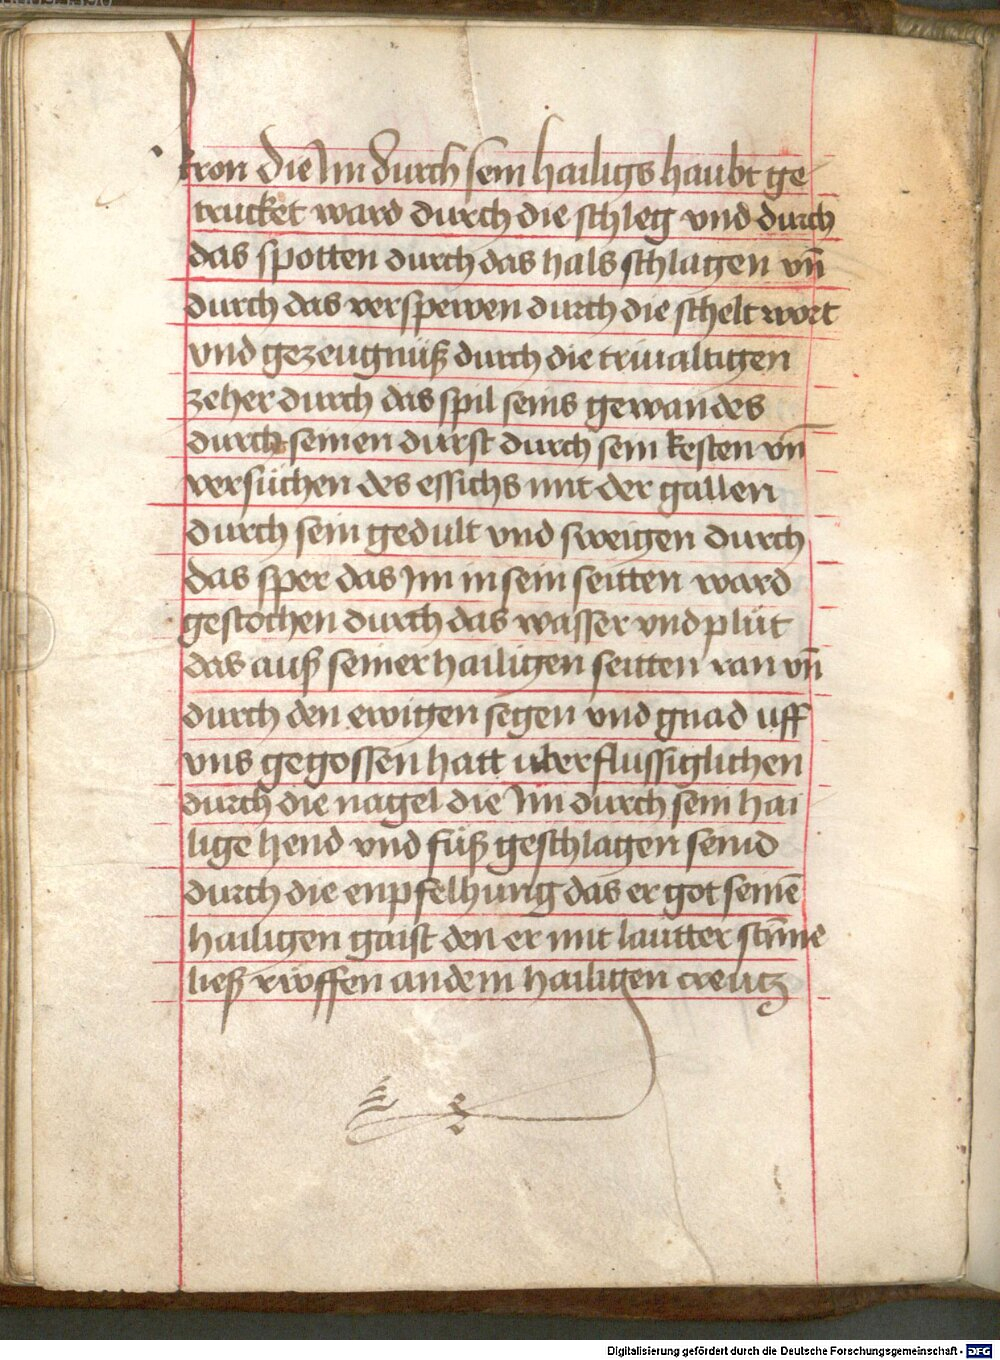 kron die Im durch sein hailigs haubt ge
trucket ward durch die schleg vnd durch
das spotten durch das hals schlagen vn̄
durch das verspewen durch die schelt wort
vnd gezeugnuß durch die triualtigen
zeher durch das spil seins gewandes
durch seinen durst durch sein kesten vn̄
versüchen des essichs mit der gallen
durch sein gedult vnd sweigen durch
das sper das Im in sein seitten ward
gestochen durch das wasser vnd plüt
das auß seiner hailigen seitten ran vn̄
durch den ewigen segen vnd gnad uff
vns gegossen hatt uberflussiglichen
durch die nagel die Im durch sein hai
lige hend vnd füß geschlagen seind
durch die enpfelhung das er got seinē
hailigen gaist den er mit lautter stīme
ließ rüffen an dem hailigen creutz
Digitalisierung gefördert durch die Deutsche Forschungsgemeinschaft - DFG